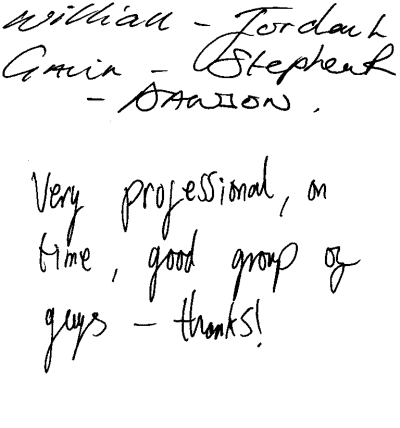 William - Jordan
Gavin - Stephen
- DAWSON.
Very professional, on
time, good group of
guys - thanks!